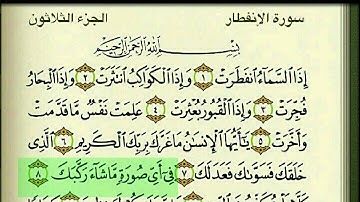 سورة الإنفطار
الجزء الثلاثون
بِسْمِ اللَّهِ الرَّحْمَٰنِ الرَّحِيمِ
إِذَا السَّمَاءُ انفَطَرَتْ ١ وَإِذَا الْكَوَاكِبُ انتَثَرَتْ ٢ وَإِذَا الْبِحَارُ
فُجِّرَتْ ٣ وَإِذَا الْقُبُورُ بُعْثِرَتْ ٤ عَلِمَتْ نَفْسٌ مَّا قَدَّمَتْ
وَأَخَّرَتْ ٥ يَا أَيُّهَا الْإِنسَانُ مَا غَرَّكَ بِرَبِّكَ الْكَرِيمِ ٦ الَّذِي
خَلَقَكَ فَسَوَّىٰكَ فَعَدَلَكَ ٧ فِي أَيِّ صُورَةٍ مَّا شَاءَ رَكَّبَكَ ٨